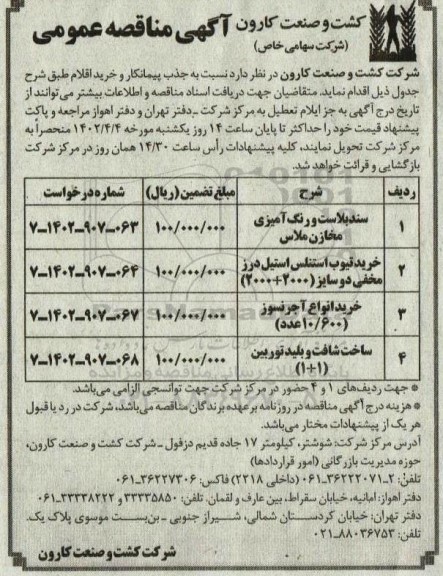 کشت و صنعت کارون
(شرکت سهامی خاص)
آگهی مناقصه عمومی
شرکت کشت و صنعت کارون در نظر دارد نسبت به جذب پیمانکار و خرید اقلام طبق شرح
جدول ذیل اقدام نماید. متقاضیان جهت دریافت اسناد مناقصه و اطلاعات بیشتر می‌توانند از
تاریخ درج آگهی به جز ایلام تعطیل به مرکز شرکت ـ دفتر تهران و دفتر اهواز مراجعه و پاکت
پیشنهاد قیمت خود را حداکثر تا پایان ساعت ۱۴ روز یکشنبه مورخه ۱۴۰۲/۴/۴ منحصراً به
مرکز شرکت تحویل نمایند، کلیه پیشنهادات رأس ساعت ۱۴/۳۰ همان روز در مرکز شرکت
بازگشایی و قرائت خواهد شد.
ردیف شرح مبلغ تضمین (ریال) شماره درخواست
۱ سندبلاست و رنگ آمیزی مخازن ملاس ۱۰۰/۰۰۰/۰۰۰ ۷-۱۴۰۲-۹۰۷-۰۶۳
۲ خرید تیوب استنلس استیل درز مخفی دو سایز (۲۰۰۰+۲۰۰۰) ۱۰۰/۰۰۰/۰۰۰ ۷-۱۴۰۲-۹۰۷-۰۶۴
۳ خرید انواع آجر نسوز (۱۰/۶۰۰ عدد) ۱۰۰/۰۰۰/۰۰۰ ۷-۱۴۰۲-۹۰۷-۰۶۷
۴ ساخت شافت و بلید توربین (۱+۱) ۱۰۰/۰۰۰/۰۰۰ ۷-۱۴۰۲-۹۰۷-۰۶۸
* جهت ردیف‌های ۱ و ۴ حضور در مرکز شرکت جهت توانسجی الزامی می‌باشد.
* هزینه درج آگهی مناقصه در روزنامه بر عهده برندگان مناقصه می‌باشد، شرکت در رد یا قبول
هر یک از پیشنهادات مختار می‌باشد.
آدرس مرکز شرکت: شوشتر، کیلومتر ۱۷ جاده قدیم دزفول ـ شرکت کشت و صنعت کارون،
حوزه مدیریت بازرگانی (امور قراردادها)
تلفن: ۲-۳۶۲۲۲۰۷۱-۰۶۱ (داخلی ۲۲۱۸) فاکس: ۳۶۲۲۷۳۰۶-۰۶۱
دفتر اهواز: امانیه، خیابان سقراط، بین عارف و لقمان. تلفن: ۳۳۳۳۵۸۵۰ و ۳۳۳۳۸۲۲۲-۰۶۱
دفتر تهران: خیابان کردستان شمالی، شیراز جنوبی ـ بن‌بست موسوی پلاک یک.
تلفن: ۸۸۰۳۶۷۵۳-۰۲۱
شرکت کشت و صنعت کارون